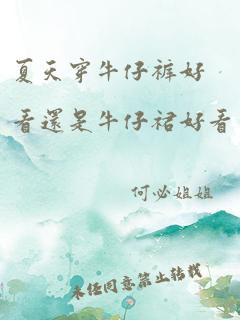 夏天穿牛仔裤好
看還是牛仔裙好看
何必姐姐
未经同意禁止转载